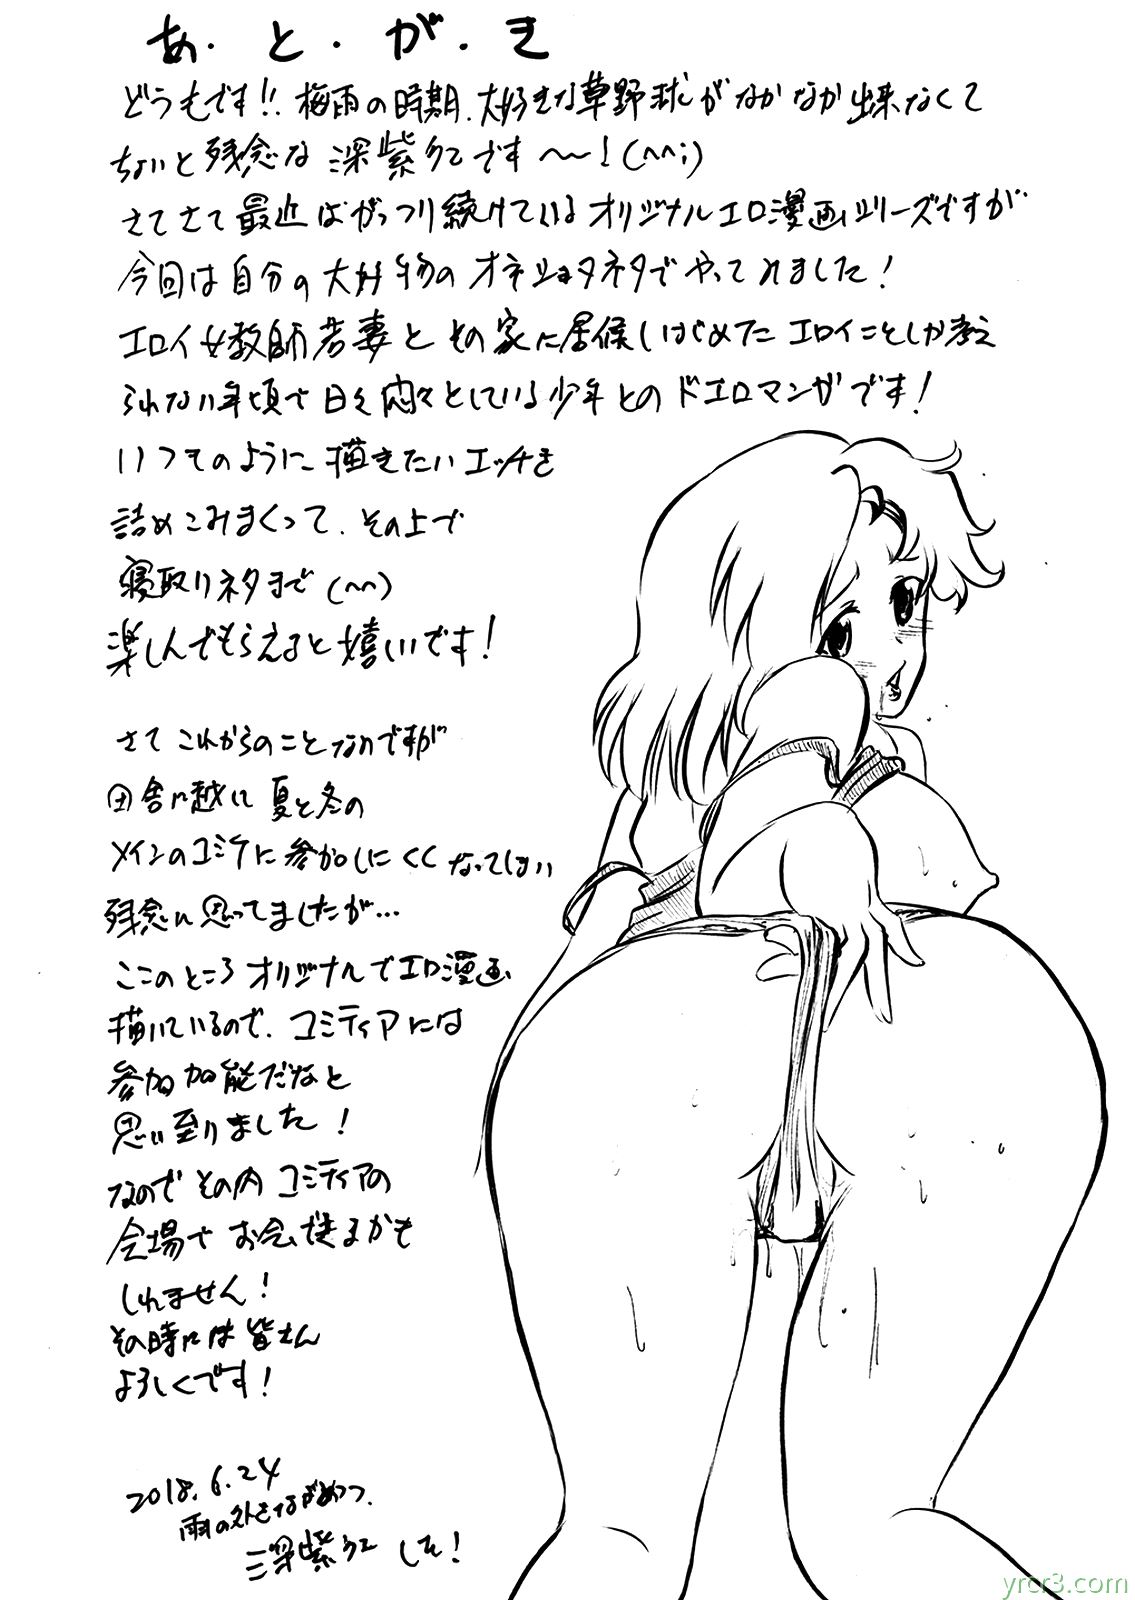 あ・と・が・き
どうもです!!梅雨の時期、大好きな草野球がなかなか出来なくて
ちょいと残念な深紫々です〜〜!(^^;)
さてさて最近はがっつり続けているオリジナルエロ漫画シリーズですが
今回は自分の大好物のオネショタネタでやってみました!
エロイ女教師若妻とその家に居候しはじめたエロイことしか考え
られない年頃で日々悶々としている少年とのドエロマンガです!
いつものように描きたいエッチを
詰めこみまくって、その上で
寝取りネタまで(^^)
楽しんでもらえると嬉しいです!
さてこれからのことなのですが
田舎に越して夏と冬の
メインのコミケに参加しにくくなってしまい
残念に思ってましたが…
ここのところオリジナルでエロ漫画
描いているので、コミティアには
参加可能だなと
思い至りました!
なのでその内コミティアの
会場でお会いできるかも
しれません!
その時には皆さん
よろしくです!
2018.6.24
雨の外をながめつつ、
深紫
yrcr3.com